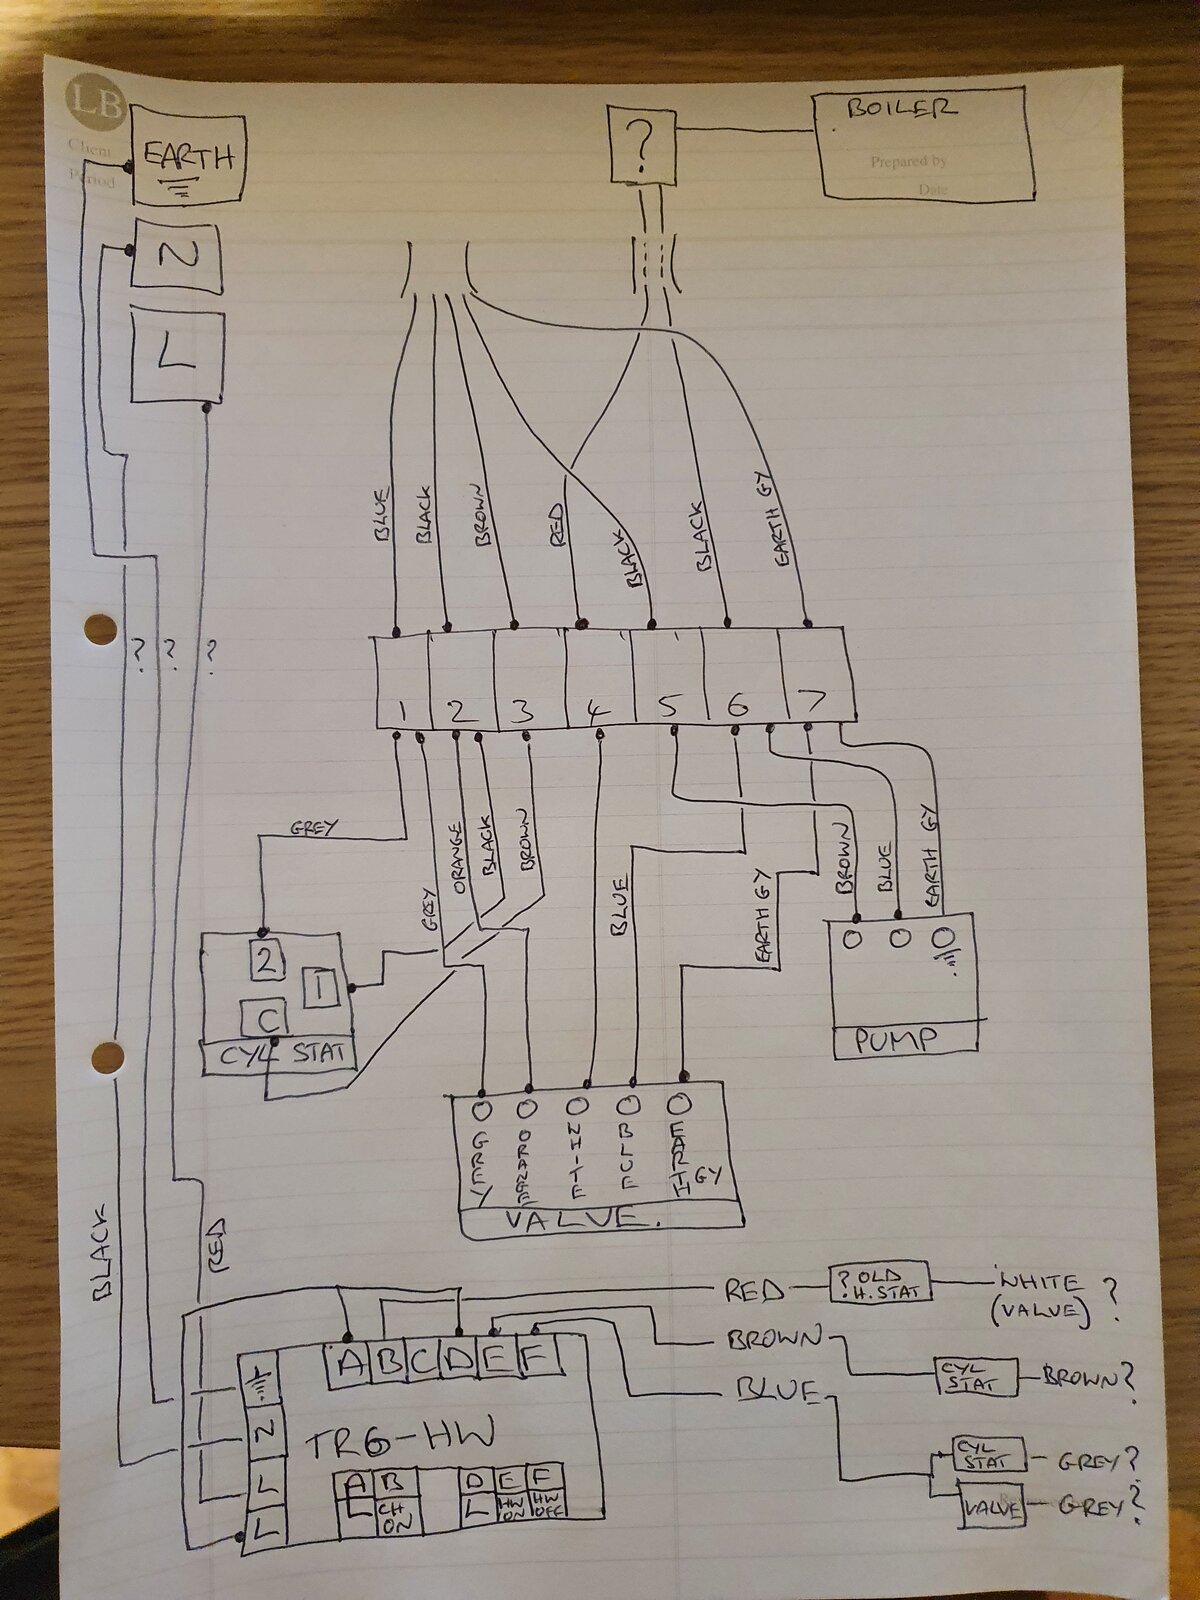 LB
Client
Period
EARTH
N
L
?
BOILER
Prepared by
Date
BLUE
BLACK
BROWN
RED
BLACK
BLACK
EARTH GY
? ? ?
1 2 3 4 5 6 7
GREY
GREY
ORANGE
BLACK
BROWN
BLUE
EARTH GY
BROWN
BLUE
EARTH GY
2
1
C
CYL STAT
PUMP
GREY
WHITE
BLUE
EARTH
GY
VALVE.
BLACK
RED
RED
? OLD
H. STAT
WHITE
(VALVE)
?
BROWN
CYL
STAT
BROWN?
BLUE
CYL
STAT
GREY?
VALVE
GREY?
A B C D E F
N
L
L
TR6-HW
A B
L CH
ON
D E F
L HW
ON
HW
OFF